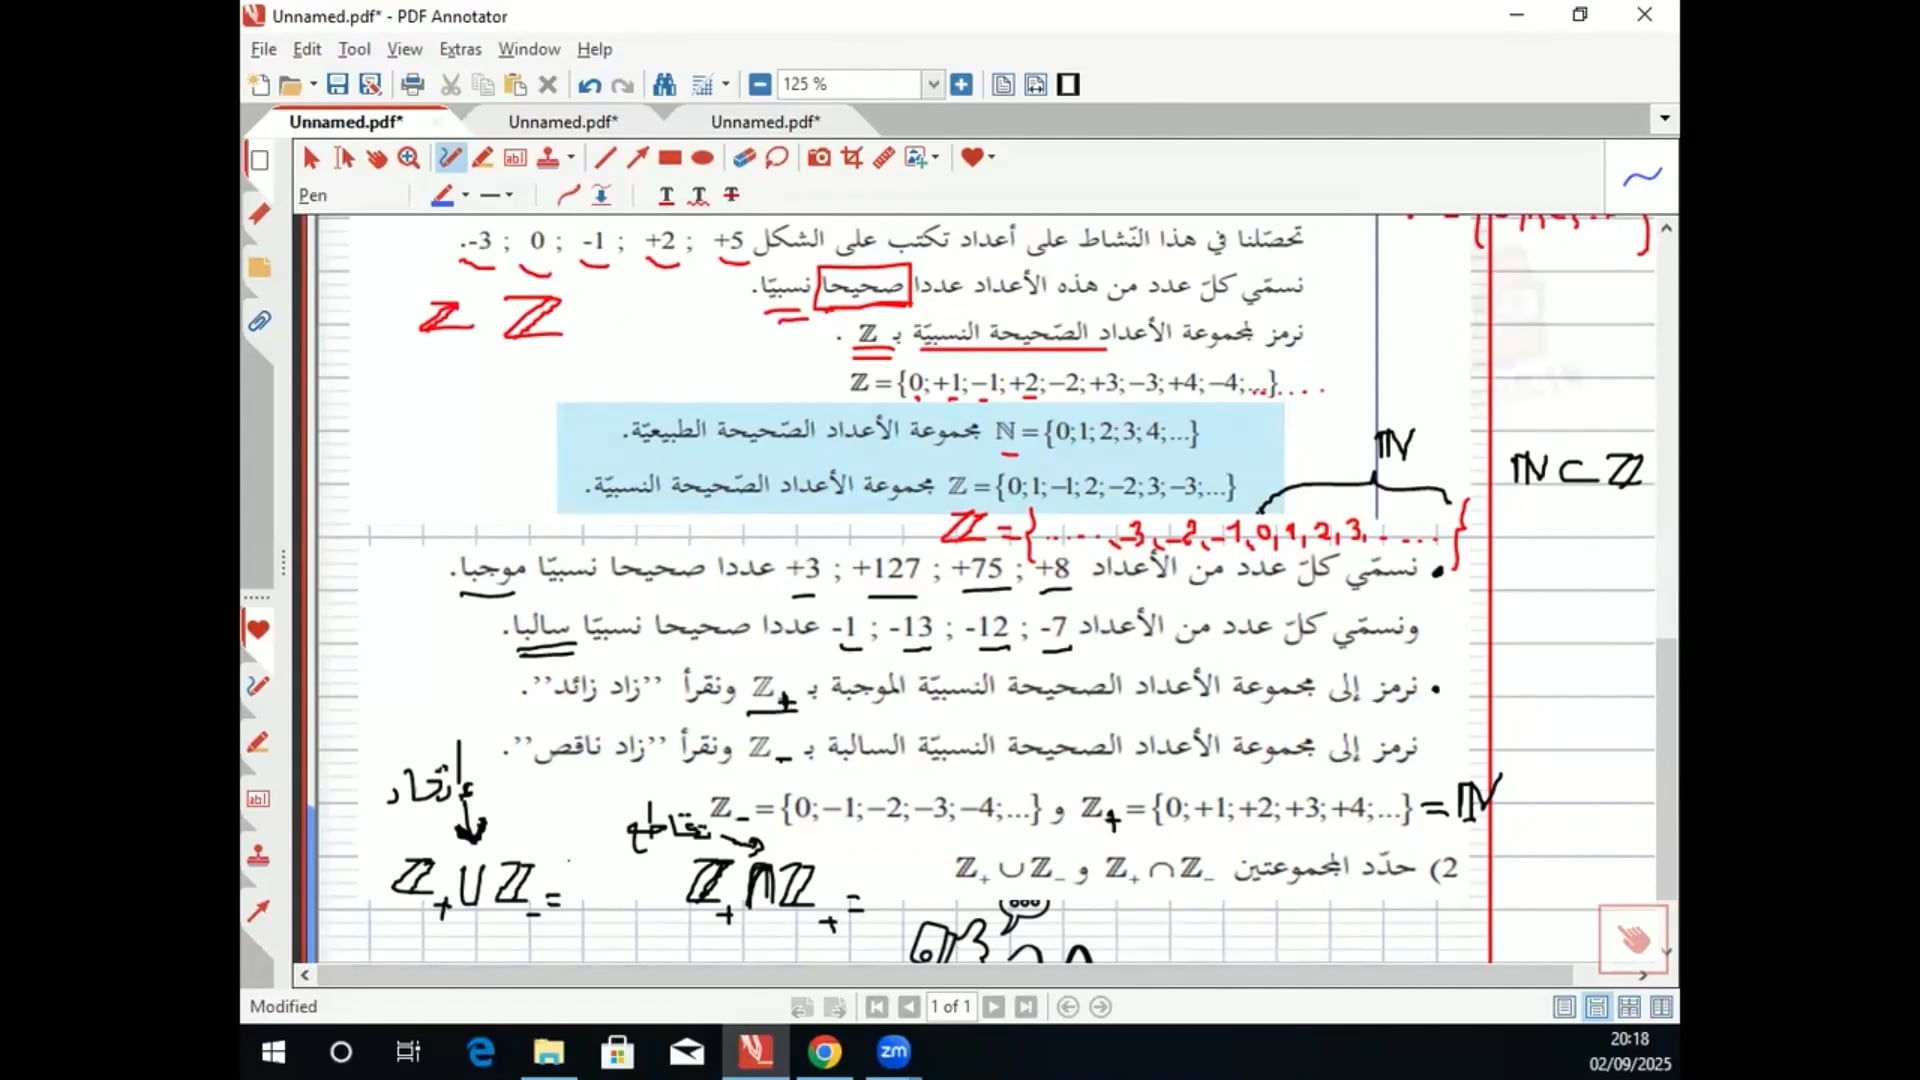 Unnamed.pdf* - PDF Annotator
File Edit Tool View Extras Window Help
125 %
Unnamed.pdf* Unnamed.pdf* Unnamed.pdf*
Pen
تحصّلنا في هذا النّشاط على أعداد تكتب على الشكل +5 ; +2 ; -1 ; 0 ; -3.
نسمّي كلّ عدد من هذه الأعداد عددا صحيحا نسبيّا.
ℤ ℤ
نرمز لمجموعة الأعداد الصّحيحة النسبيّة بـ ℤ .
ℤ = {0; +1; −1; +2; −2; +3; −3; +4; −4; ...}
ℕ = {0; 1; 2; 3; 4; ...} مجموعة الأعداد الصّحيحة الطبيعيّة.
ℕ
ℕ ⊂ ℤ
ℤ = {0; 1; −1; 2; −2; 3; −3; ...} مجموعة الأعداد الصّحيحة النسبيّة.
ℤ = {......, -3, -2, -1, 0, 1, 2, 3, .....}
• نسمّي كلّ عدد من الأعداد +8 ; +75 ; +127 ; +3 عددا صحيحا نسبيّا موجبا.
ونسمّي كلّ عدد من الأعداد -7 ; -12 ; -13 ; -1 عددا صحيحا نسبيّا سالبا.
• نرمز إلى مجموعة الأعداد الصحيحة النسبيّة الموجبة بـ ℤ+ ونقرأ ”زاد زائد”.
نرمز إلى مجموعة الأعداد الصحيحة النسبيّة السالبة بـ ℤ- ونقرأ ”زاد ناقص”.
ℤ+ = {0; +1; +2; +3; +4; ...} و ℤ- = {0; −1; −2; −3; −4; ...}
= ℕ
إتّحاد
تقاطع
2) حدّد المجموعتين ℤ+ ∩ ℤ- و ℤ+ ∪ ℤ-
ℤ+ ∩ ℤ+ =
ℤ+ ∪ ℤ- =
Modified
1 of 1
zm
20:18
02/09/2025